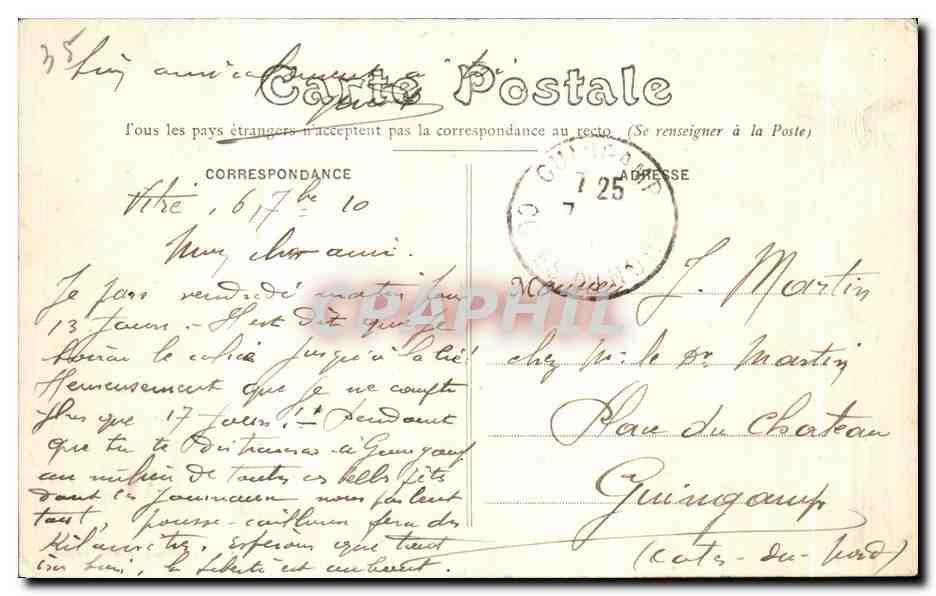 35
amicalement à
Carte Postale
Tous les pays étrangers n'acceptent pas la correspondance au recto (Se renseigner à la Poste)
CORRESPONDANCE
ADRESSE
GUINGAMP
7 25
7
CÔTES-DU-NORD
Vitré, 6, 7bre 10
Mon cher ami.
Je pars vendredi matin pour
13 Jours. - Il est dit que je
boirai le calice jusqu'à la lie!
Heureusement que je ne compte
plus que 17 Jours!! Pendant
que tu te distrairas à Guingamp
au milieu de toutes ces belles fêtes
dont les Journaux nous parlent
tant, pousse-cailloux fera des
Kilomètres. Espérons que tout
ira bien, la liberté est au bout.
Monsieur J. Martin
chez Mr le Dr Martin
Place du Chateau
Guingamp
(Cotes-du-Nord)
CPAPHIL